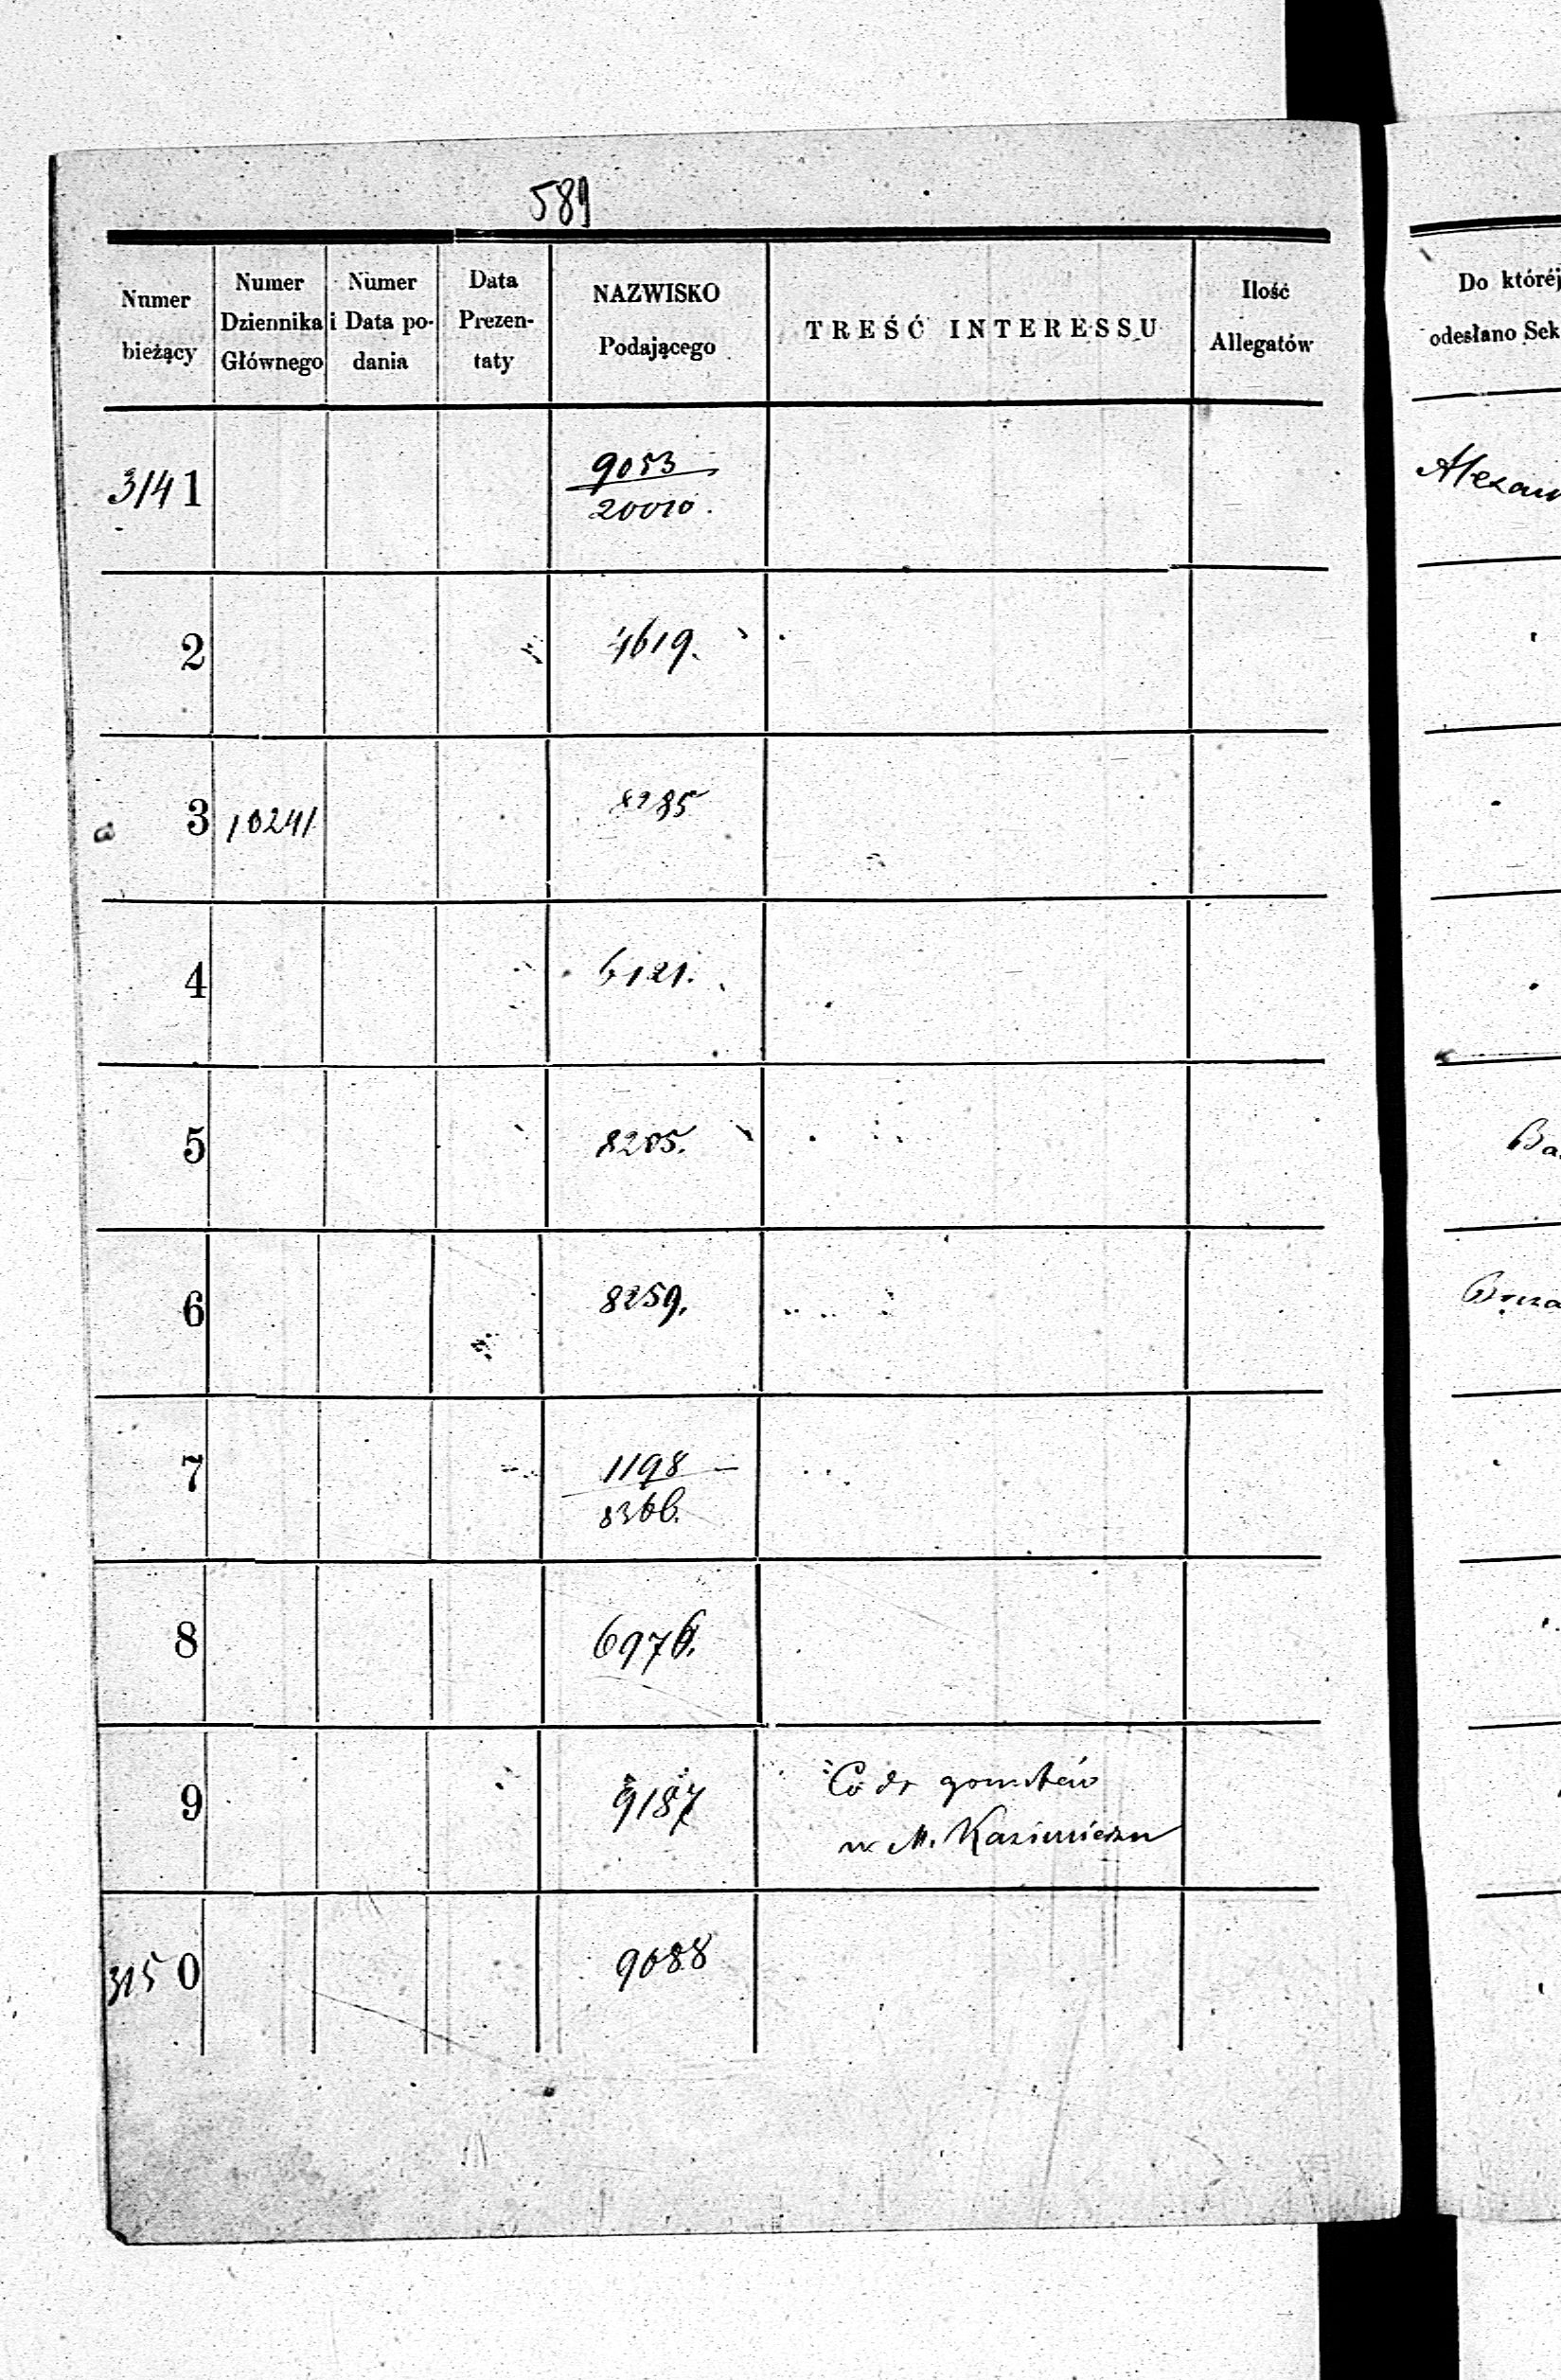 589
Numer bieżący
Numer Dziennika Głównego
Numer i Data po-dania
Data Prezen-taty
NAZWISKO Podającego
TREŚĆ INTERESSU
Ilość Allegatów
Do któréj
odesłano Sek
3141
9053
20010.
Alexan
2
4619.
3
10241
8285
4
6121.
5
8205.
Ba
6
8259.
7
1198
8366.
8
6976.
9
9187
Co do
w M. Kazimierzu
3150
9088